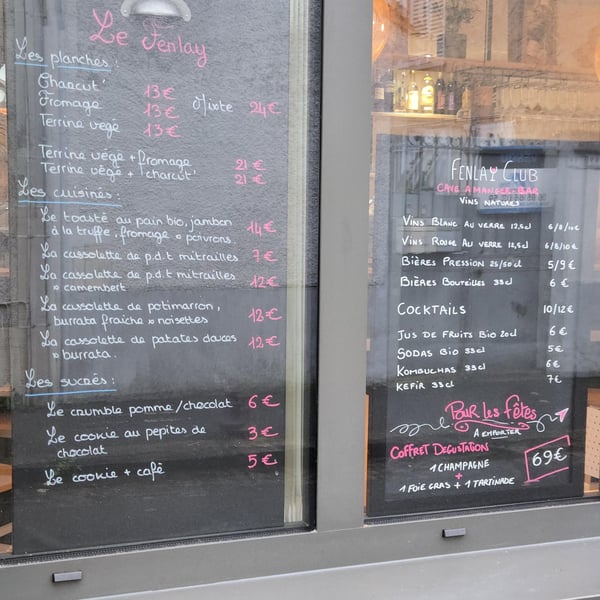 Le Fenlay
Les planches :
Charcut' 13 €
Fromage 13 € Mixte 24 €
Terrine végé 13 €
Terrine végé + fromage 21 €
Terrine végé + charcut' 21 €
Les cuisinés :
Le toasté au pain bio, jambon 14 €
à la truffe, fromage & poivrons.
La cassolette de p.d.t mitrailles 7 €
La cassolette de p.d.t mitrailles 12 €
& camembert
La cassolette de potimarron, 12 €
burrata fraiche & noisettes
La cassolette de patates douces 12 €
& burrata.
Les sucrés :
Le crumble pomme/chocolat 6 €
Le cookie au pepites de 3 €
chocolat
Le cookie + café 5 €
FENLAY CLUB
CAVE A MANGER - BAR
VINS NATURES
VINS BLANC AU VERRE 12,5cl 6/8/10 €
VINS ROUGE AU VERRE 12,5cl 6/8/10 €
BIÈRES PRESSION 25/50 cl 5/9 €
BIÈRES BOUTEILLES 33cl 6 €
COCKTAILS 10/12 €
JUS DE FRUITS BIO 20cl 6 €
SODAS BIO 33cl 5 €
KOMBUCHAS 33cl 6 €
KEFIR 33cl 7 €
POUR LES FÊTES
A EMPORTER
COFFRET DEGUSTATION
1 CHAMPAGNE 69 €
+
1 FOIE GRAS + 1 TARTINADE